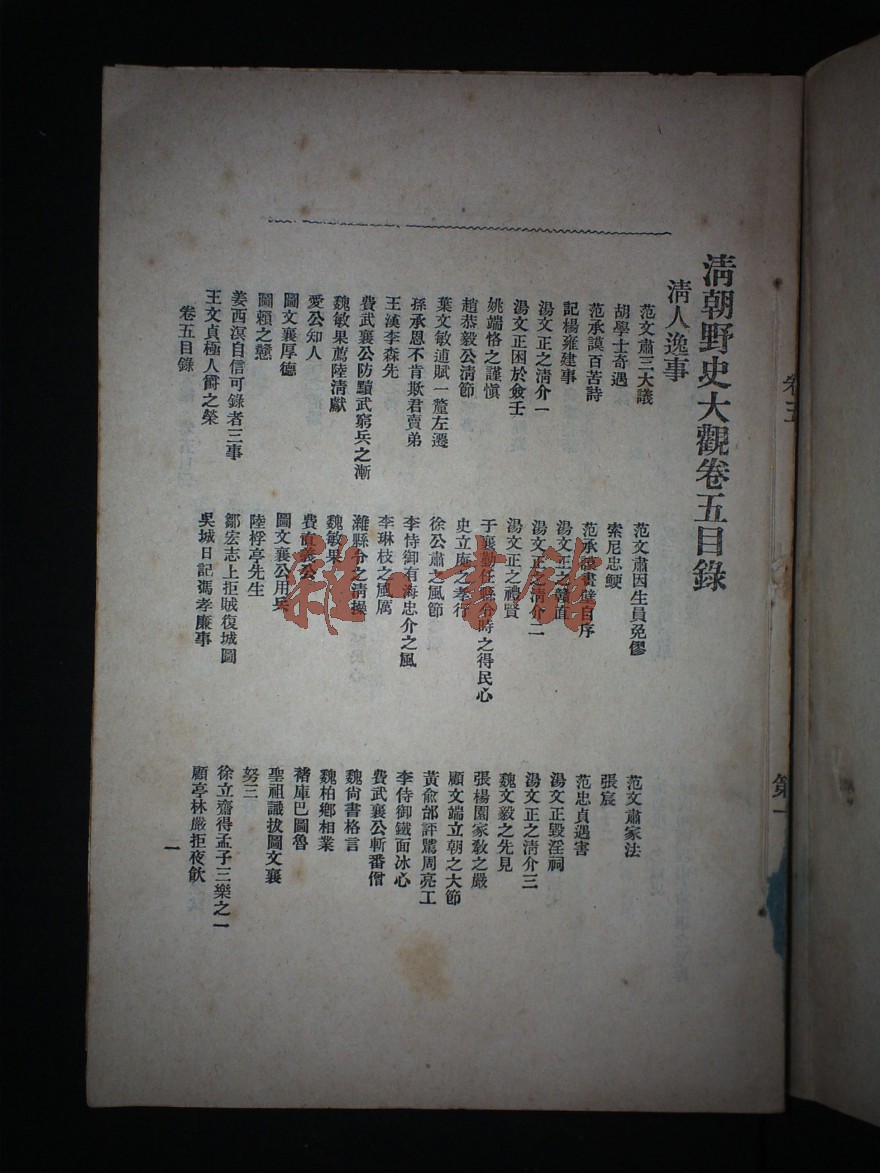 清朝野史大觀卷五目錄
清人逸事
范文肅三大議
范文肅因生員免僇
范文肅家法
胡學士奇遇
索尼忠鯁
張宸
范承謨百苦詩
范承謨畫壁自序
范忠貞遇害
記楊雍建事
湯文正之戇直
湯文正毀淫祠
湯文正之清介一
湯文正之清介二
湯文正之清介三
湯文正困於僉壬
湯文正之禮賢
魏文毅之先見
姚端恪之謹愼
于襄勤任縣令時之得民心
張楊園家教之嚴
趙恭毅公清節
史立庵之孝行
顧文端立朝之大節
葉文敏逋賦一釐左遷
徐公肅之風節
黃兪邰評騭周亮工
孫承恩不肯欺君賣弟
李侍御有海忠介之風
李侍御鐵面冰心
王漢李森先
李琳枝之風厲
費武襄公斬番僧
費武襄公防黷武窮兵之漸
濰縣令之清操
魏尙書格言
魏敏果薦陸清獻
魏敏果
魏柏鄉相業
愛公知人
費直義公
褚庫巴圖魯
圖文襄厚德
圖文襄公用兵
聖祖識拔圖文襄
圖賴之戇
陸桴亭先生
努三
姜西溟自信可錄者三事
鄒宏志上拒賊復城圖
徐立齋得孟子三樂之一
王文貞極人爵之榮
吳城日記馮孝廉事
顧亭林嚴拒夜飲
卷五目錄
一
雜·書館
卷五
第一